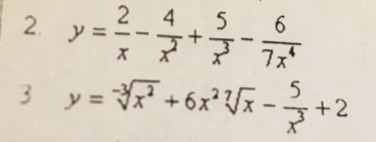 2. y = 2/x − 4/x² + 5/x³ − 6/7x⁴
3 y = ⁻³√x² + 6x² ⁷√x − 5/x³ + 2